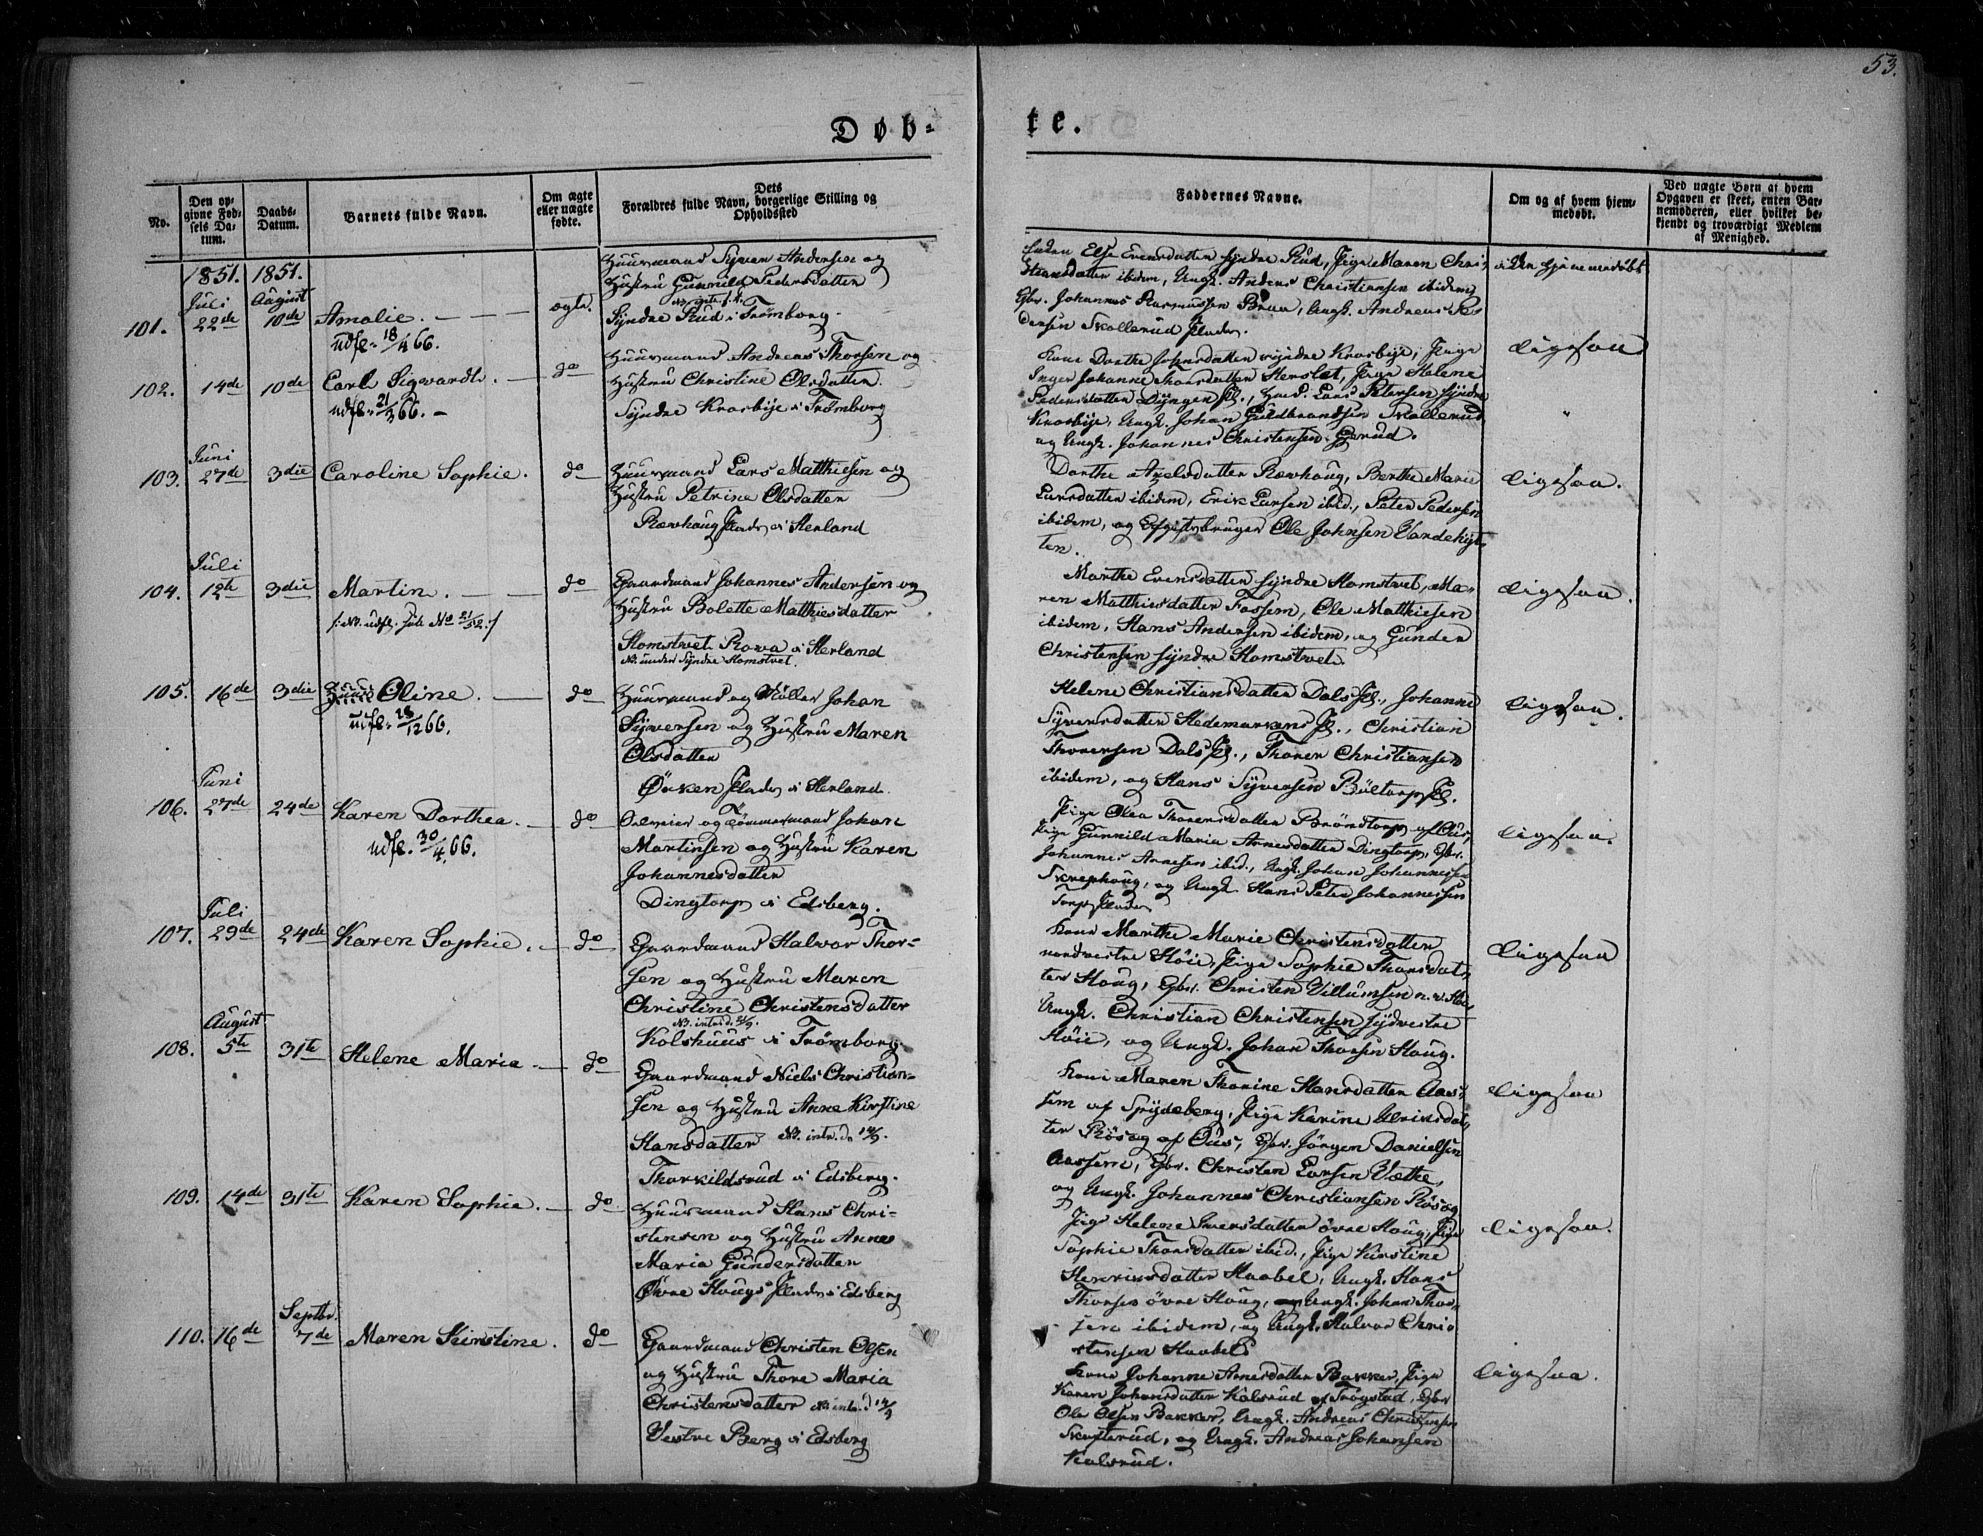 53.
Døb-
te.
No.
Den op-
givne Fød-
sels Da-
tum.
Daabs-
Datum.
Barnets fulde Navn.
Om ægte
eller uægte
fødte.
Dets
Forældres fulde Navn, borgerlige Stilling og
Opholdssted
Faddernes Navne.
Om og af hvem hjem-
medøbt.
Ved uægte Børn af hvem
Opgaven er skeet, enten Bar-
nemoderen, eller hvilket be-
kjendt og troværdigt Medlem
af Menighed.
1851. 1851.
Juli August
101. 22de 10de Amalie. ægte.
udfl. 18/4 66.
Huusmand Syver Andersen og
Hustru Gunnild Pedersdatter
Syndre Rud i Trømborg.
Else Evensdatter syndre Rud, Pige Maren Chri-
stiansdatter ibidem, Ungk. Anders Christiansen ibidem,
Gbr. Johannes Rasmussen Bruu, Ungk. Andreas Pe-
dersen Skollerud Pladr.
Ikke hjemmedøbt
102. 14de 10de Carl Sigvardt. do
udfl. 21/3 66.
Huusmand Andreas Thorsen og
Hustru Christine Olsdatter
Syndre Krosbye i Trømborg
Kone Dorthe Johnsdatter syndre Krosbye, Pige
Inger Johanne Thorsdatter Herslet, Pige Helene
Pedersdatter Dyngen Pl., Huusm. Lars Petersen syndre
Krosbye, Ungk. Johan Guldbrandsen Skollerud
og Ungk. Johannes Christensen Gerud.
ligesaa
Juni
103. 27de 3die Caroline Sophie. do
Huusmand Lars Matthiesen og
Hustru Petrine Olsdatter
Rævhoug Plads i Herland
Dorthe Axelsdatter Rævhoug, Berthe Marie
Larsdatter ibidem, Erik Larsen ibid., Peter Pedersen
ibidem, og Afgiftsbruger Ole Johnsen Vandehyt-
ten.
ligesaa.
Juli
104. 12te 3die Martin. do
Gaardmand Johannes Andersen og
Hustru Bolette Matthiesdatter
Homstvet Rova i Herland
NB. under Syndre Homstvet.
Marthe Evensdatter syndre Homstvet, Ma-
ren Matthisdatter Fossem, Ole Matthiesen
ibidem, Hans Andersen ibidem, og Gunder
Christensen syndre Homstvet.
ligesaa.
105. 16de 3die Oline. do
udfl. 28/12 66.
Huusmand og Møller Johan
Syversen og Hustru Maren
Olsdatter
Ørken Plads i Herland.
Helene Christiansdatter Dals Pl., Johanne
Syversdatter Hedemarkens Pl., Christian
Thorersen Dals Pl., Thorer Christiansen
ibidem, og Hans Syversen Böltorp Pl.
ligesaa.
Juni
106. 27de 24de Karen Dorthea. do
udfl. 30/4 66.
og Tømmermand Johan
Martinsen og Hustru Karen
Johannesdatter
Dingtorp i Edsberg.
Pige Olea Thorersdatter Bröndtorp af Øus,
Pige Gunnild Maria Arnesdatter Dingtorp, Gbr.
Johannes Arnesen ibid., Ungk. Johan Johannesen
Skrephoug, og Ungk. Hans Peter Johannessen
Torp Plads
ligesaa.
Juli
107. 29de 24de Karen Sophie. do
Gaardmand Halvor Thor-
sen og Hustru Maren
Christine Christensdatter
Kolshuus i Trømborg
Kone Marthe Marie Christensdatter
nordvestre Höie, Pige Sophie Thorsdat-
ter Houg, Gbr. Christen Villumsen n. v. Höie
Ungk. Christian Christensen sydvestre
Höie, og Ungk. Johan Thorsen Houg.
ligesaa
August
108. 5te 31te Helene Maria do
Gaardmand Niels Christian-
sen og Hustru Anne Kirstine
Hansdatter NB. introd. 14/9.
Thorkildsrud i Edsberg.
Kone Maren Thorine Hansdatter Aas-
sem af Spydeberg, Pige Karine Ulriksdat-
ter Rösæg af Øus, Gbr. Jörgen Danielsen
Aassem, Gbr. Christen Larsen Vætke,
og Ungk. Johannes Christiansen Rösæg
ligesaa
109. 14de 31te Karen Sophie. do
Huusmand Hans Chri-
stensen og Hustru Anne
Maria Gundersdatter
Øvre Hougs Plads i Edsberg
Pige Helene Iversdatter øvre Houg, Pige
Sophie Thorsdatter ibid., Pige Kirstine
Henriksdatter Haabel, Ungk. Hans
Thorsen øvre Houg, Ungk. Johan Thor-
sen ibidem, og Ungk. Halvor Chri-
stensen Haabel
ligesaa.
Septbr.
110. 16de 7de Maren Kirstine. do
Gaardmand Christen Olsen
og Hustru Thore Maria
Christensdatter
Vestre Berg i Edsberg
Kone Johanne Arnesdatter Bakker, Pige
Karen Johansdatter Kalsrud af Trøgstad, Gbr
Ole Olsen Bakker, Ungk. Andreas Christensen
og Ungk. Andreas Johansen
Kalsrud.
ligesaa.